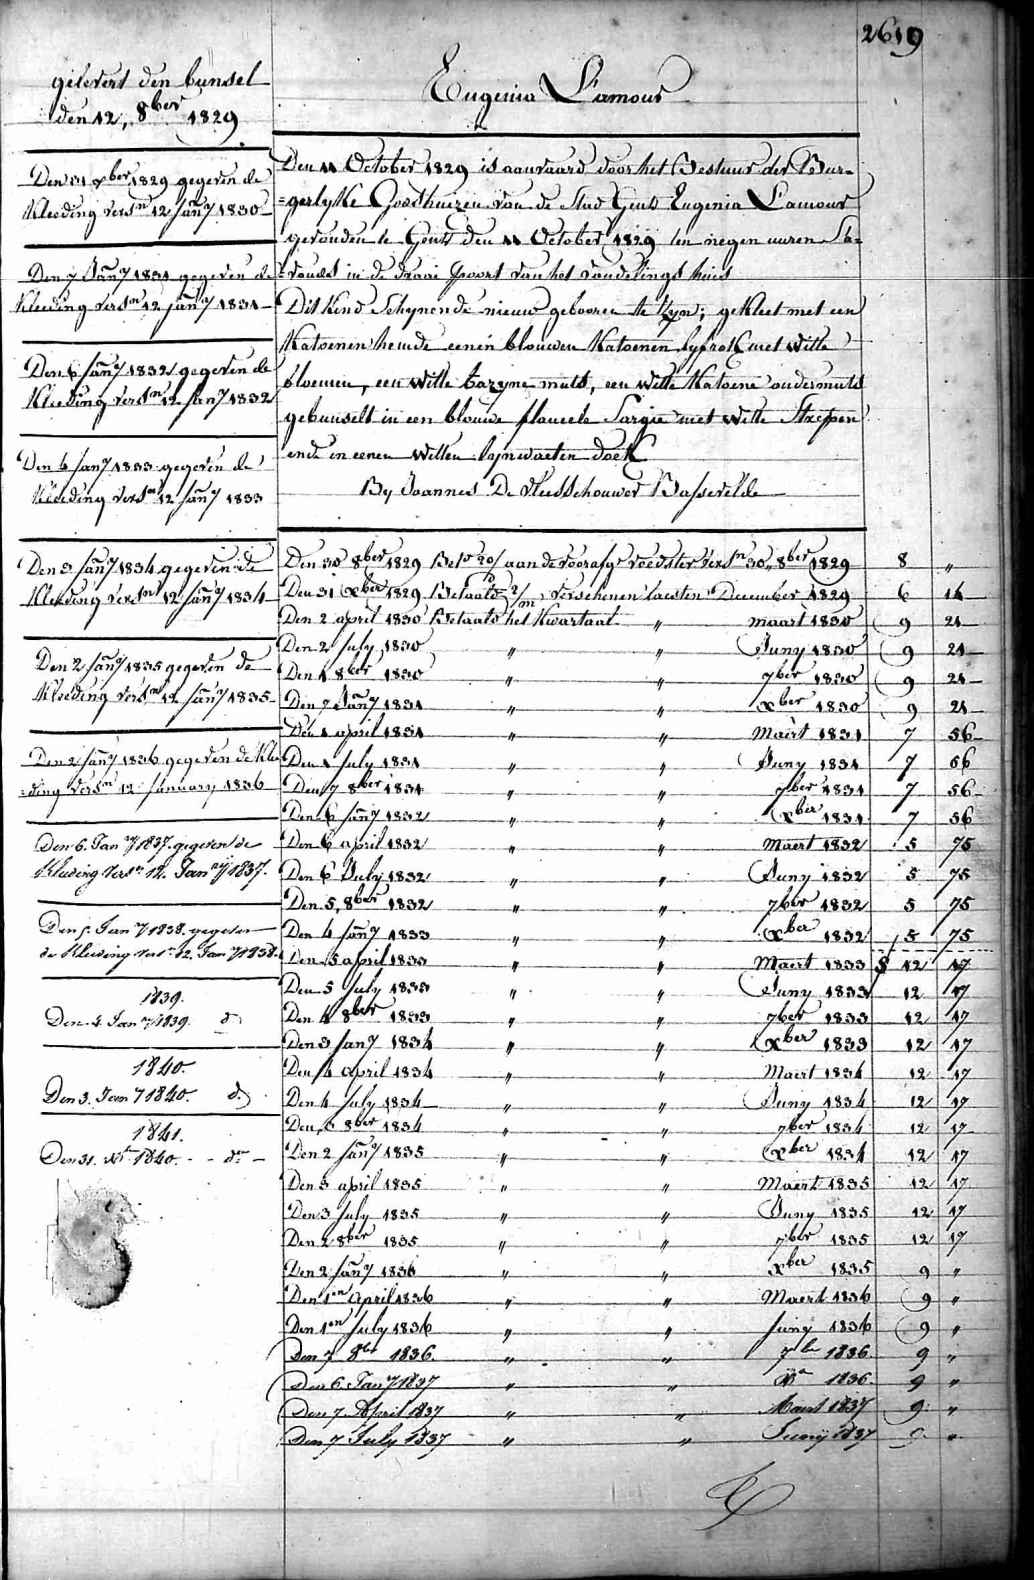 2619
gelevert den bunsel
den 12, 8ber 1829
Eugenia L'amour
Den 11 October 1829 is aanvaard door het Bestuur der Bur=
=gerlyke Godshuizen van de Stad Gend Eugenia L'amour
gevonden te Gend den 11 October 1829 ten negen uuren S'a=
=vonds in de draai poort van het vondelings huis
Dit Kind Schynende nieuw gebooren te Zyn; gekleet met een
Katoenen hemde eenen blouwen Katoenen lyfrok met Witte
bloemen, een Witte bazyne muts, een Witte Katoene ondermuts
gebunselt in een blouwe flaneele Sargie met Witte Strepen
ende in eenen Witten lynwaeten doek
By Joannes De Vleesschouwer Bassevelde
Den 31 xber 1829 gegeven de
Kleeding versn 12 Jany 1830
Den 7 Jany 1831 gegeven de
Kleeding versn 12 Jany 1831
Den 6 Jany 1832 gegeven de
Kleeding versn 12 Jany 1832
Den 4 Jany 1833 gegeven de
Kleeding versn 12 Jany 1833
Den 3 Jany 1834 gegeven de
Kleeding versn 12 Jany 1834
Den 2 Jany 1835 gegeven de
Kleeding versn 12 Jany 1835
Den 2 Jany 1836 gegeven de Klee
=ding versn 12 January 1836
Den 6. Jany 1837. gegeven de
Kleeding versn 12. Jany 1837.
Den 5. Jany 1838. gegeven
de Kleeding versn 12. Jany 1838.
1839.
Den 4. Jany 1839. do
1840.
Den 3. Jany 1840. do
1841.
Den 31. xbr 1840. - - do -
Den 30 8ber 1829 Bet aan de voorafge voedster versn 30, 8ber 1829 8 "
Den 31 xber 1829 Betaald verschenen laesten December 1829 6 14
Den 2 april 1830 Betaald het Kwartaal " maart 1830 9 21
Den 2 July 1830 " " Juny 1830 9 21
Den 1 8ber 1830 " " 7ber 1830 9 21
Den 7 Jany 1831 " " xber 1830 9 21
Den 1 april 1831 " " Maert 1831 7 56
Den 1 July 1831 " " Juny 1831 7 56
Den 7 8ber 1831 " " 7ber 1831 7 56
Den 6 Jany 1832 " " xber 1831 7 56
Den 6 april 1832 " " Maert 1832 5 75
Den 6 July 1832 " " Juny 1832 5 75
Den 5, 8ber 1832 " " 7ber 1832 5 75
Den 4 Jany 1833 " " xber 1832 5 75
Den 5 april 1833 " " Maert 1833 12 17
Den 5 July 1833 " " Juny 1833 12 17
Den 4 8ber 1833 " " 7ber 1833 12 17
Den 3 Jany 1834 " " xber 1833 12 17
Den 4 april 1834 " " Maert 1834 12 17
Den 4 July 1834 " " Juny 1834 12 17
Den 8ber 1834 " " 7ber 1834 12 17
Den 2 Jany 1835 " " xber 1834 12 17
Den 3 april 1835 " " Maert 1835 12 17
Den 3 July 1835 " " Juny 1835 12 17
Den 2 8ber 1835 " " 7ber 1835 12 17
Den 2 Jany 1836 " " xber 1835 9 "
Den 1en April 1836 " " Maert 1836 9 "
Den 1en July 1836 " " Juny 1836 9 "
Den 7 8br 1836. " " 7br 1836. 9 "
Den 6. Jany 1837 " " Xbr 1836. 9 "
Den 7 April 1837 " " Maert 1837 9 "
Den 7 July 1837 " " Juny 1837 9 "